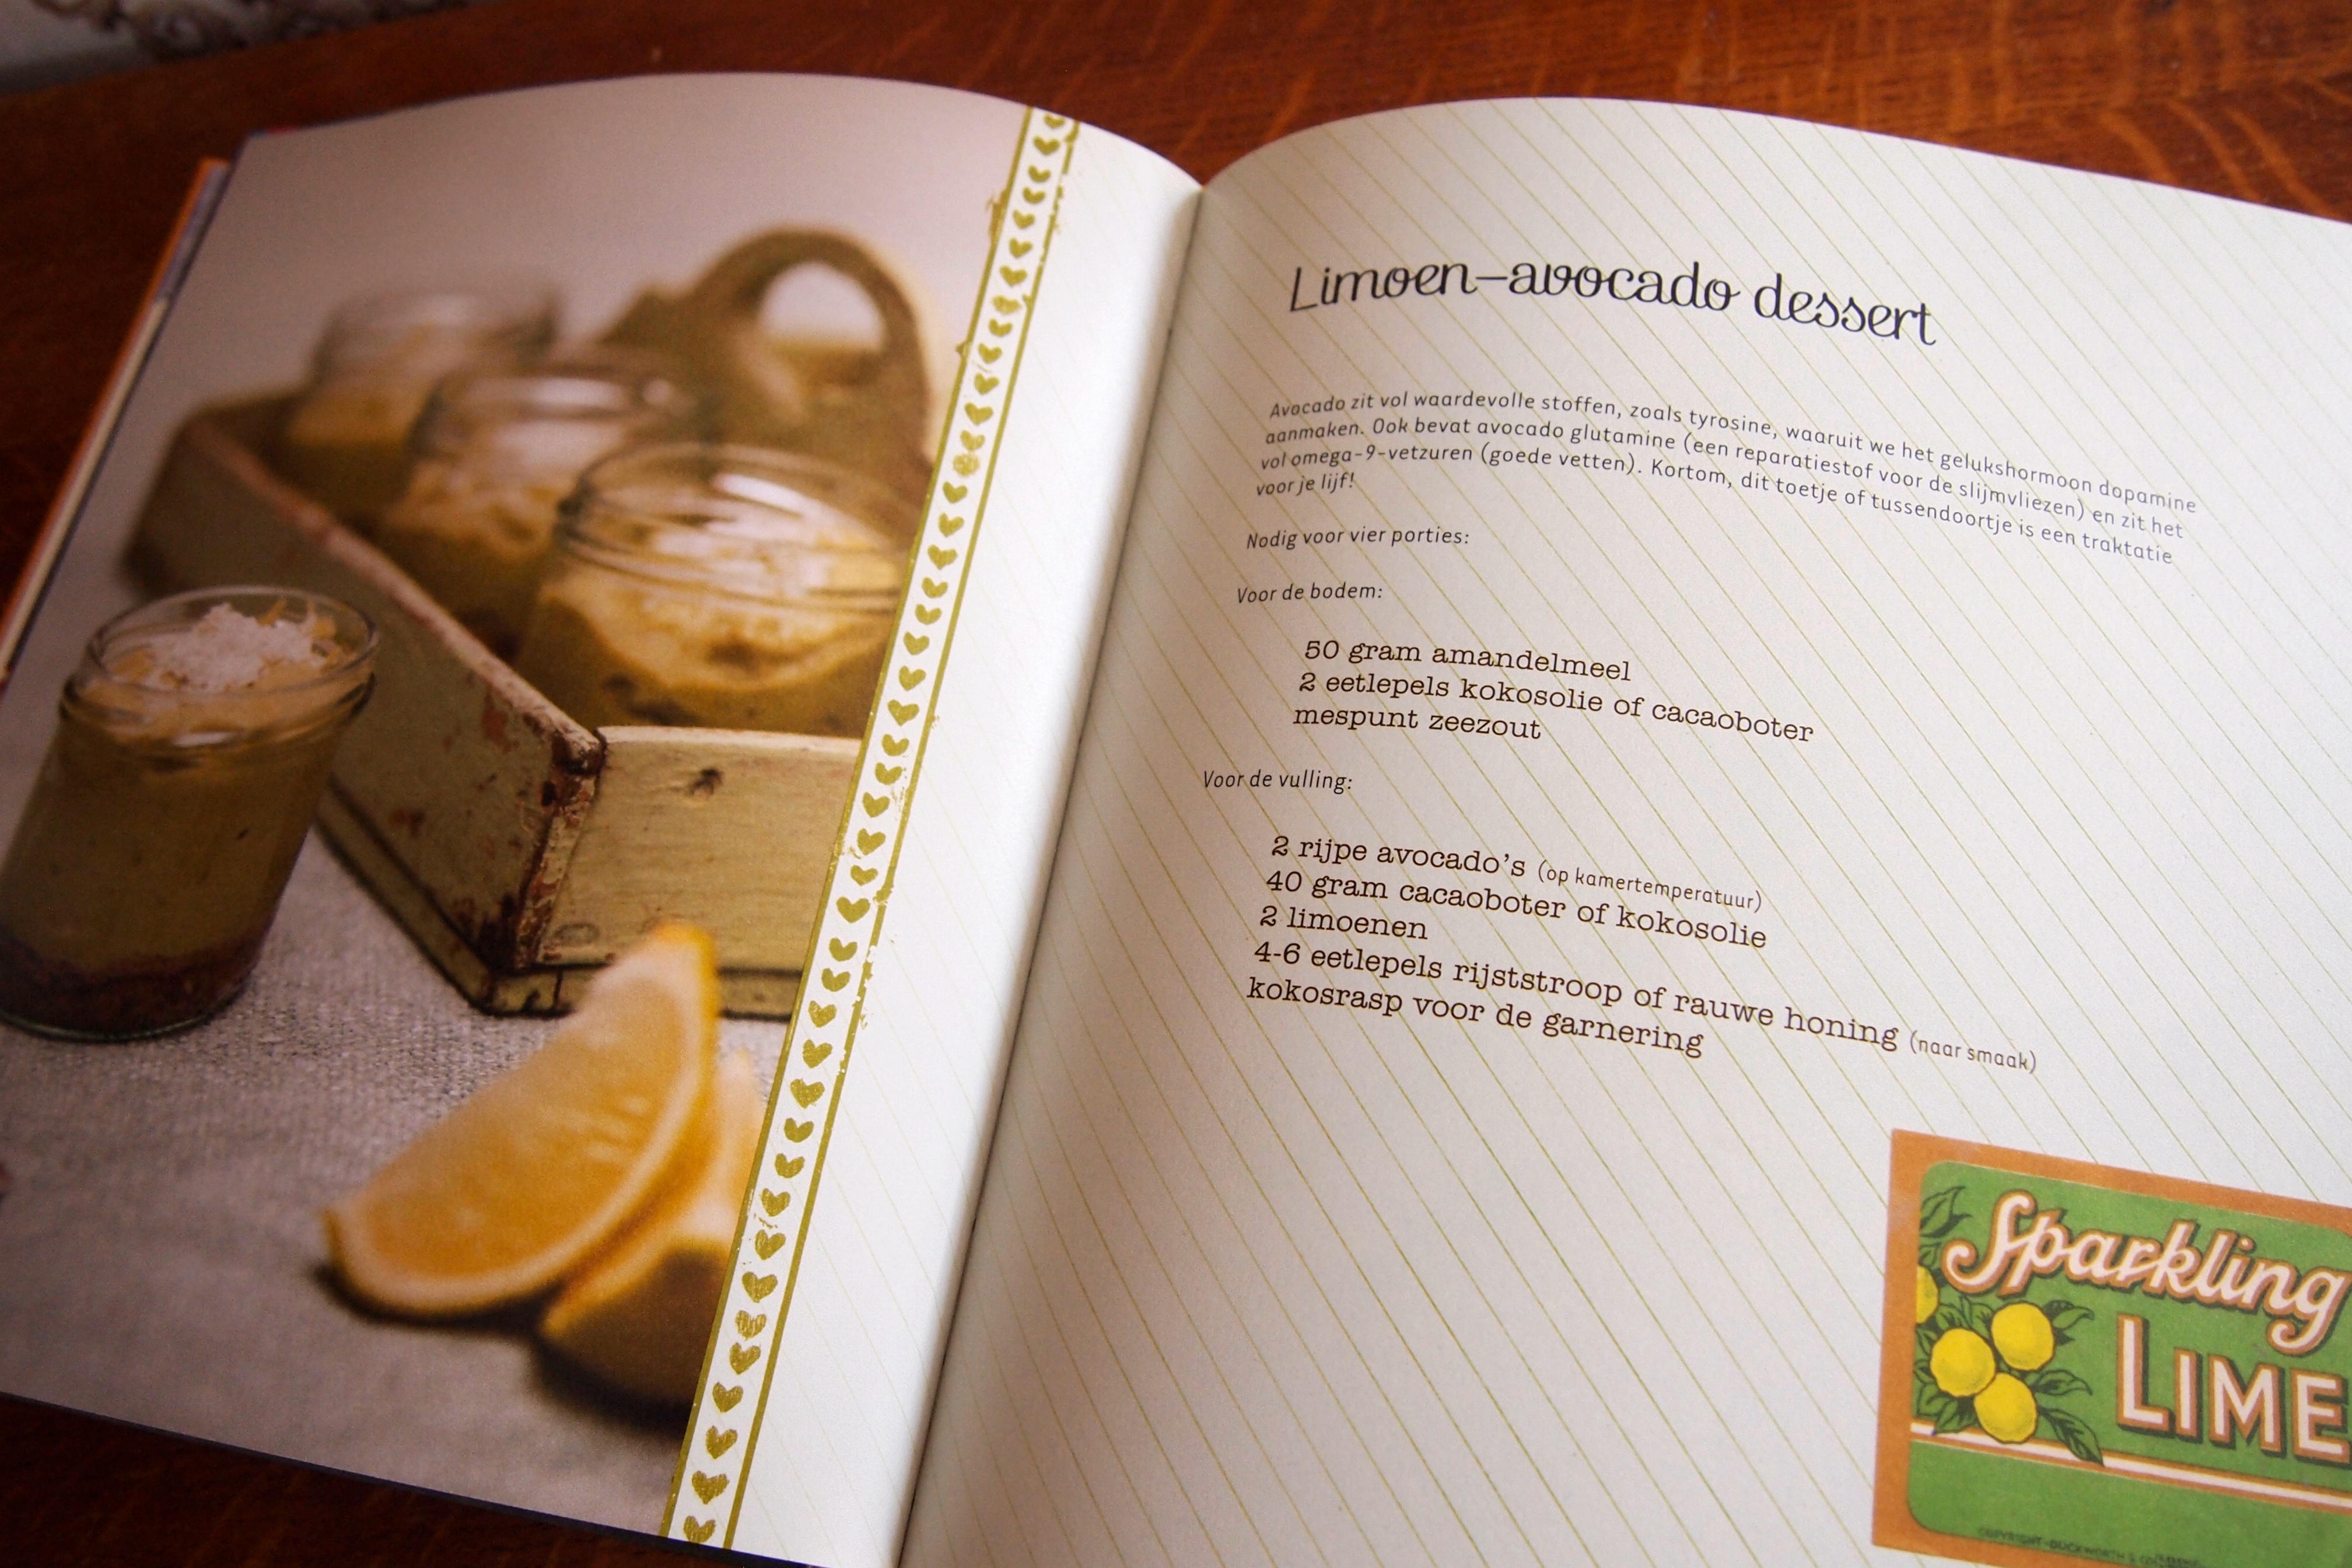 Limoen-avocado dessert
Avocado zit vol waardevolle stoffen, zoals tyrosine, waaruit we het gelukshormoon dopamine
aanmaken. Ook bevat avocado glutamine (een reparatiestof voor de slijmvliezen) en zit het
vol omega-9-vetzuren (goede vetten). Kortom, dit toetje of tussendoortje is een traktatie
voor je lijf!
Nodig voor vier porties:
Voor de bodem:
50 gram amandelmeel
2 eetlepels kokosolie of cacaoboter
mespunt zeezout
Voor de vulling:
2 rijpe avocado's (op kamertemperatuur)
40 gram cacaoboter of kokosolie
2 limoenen
4-6 eetlepels rijststroop of rauwe honing (naar smaak)
kokosrasp voor de garnering
Sparkling
LIME
COPYRIGHT-DUCKWORTH &